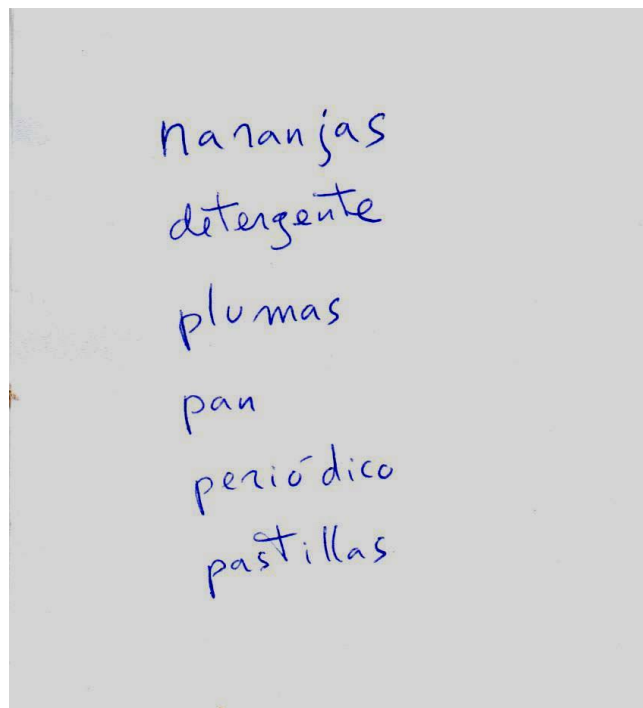 naranjas
detergente
plumas
pan
periódico
pastillas